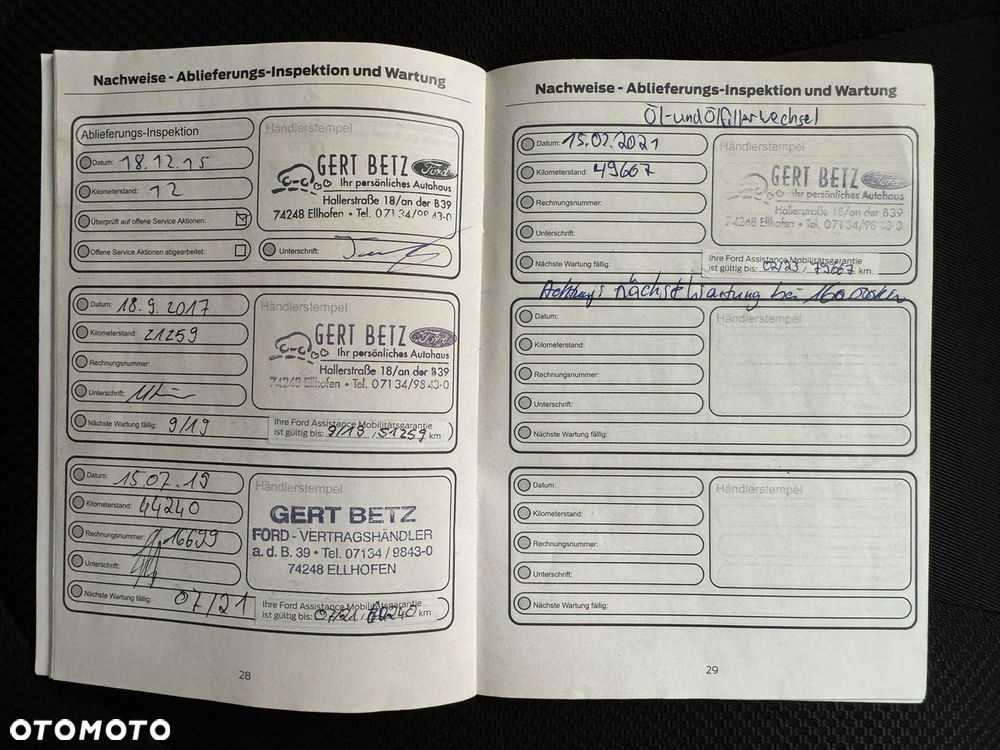 Nachweise - Ablieferungs-Inspektion und Wartung
Ablieferungs-Inspektion
Datum: 18.12.15
Kilometerstand: 12
Überprüft auf offene Service Aktionen:
Offene Service Aktionen abgearbeitet:
Händlerstempel
GERT BETZ Ford
Ihr persönliches Autohaus
Hallerstraße 18/an der B39
74248 Ellhofen • Tel. 07134/98 43-0
Unterschrift:
Datum: 18.9.2017
Kilometerstand: 21259
Rechnungsnummer:
Unterschrift:
Nächste Wartung fällig: 9/19
GERT BETZ Ford
Ihr persönliches Autohaus
Hallerstraße 18/an der B39
74248 Ellhofen • Tel. 07134/98 43-0
Ihre Ford Assistance Mobilitätsgarantie
ist gültig bis: 9/19, 51259 km
Datum: 15.07.19
Kilometerstand: 44240
Rechnungsnummer: 16699
Unterschrift:
Nächste Wartung fällig: 07/21
Händlerstempel
GERT BETZ
FORD - VERTRAGSHÄNDLER
a. d. B. 39 • Tel. 07134 / 9843-0
74248 ELLHOFEN
Ihre Ford Assistance Mobilitätsgarantie
ist gültig bis: 07/21, km
28
Nachweise - Ablieferungs-Inspektion und Wartung
Öl-und Ölfilterwechsel
Datum: 15.02.2021
Kilometerstand: 49667
Rechnungsnummer:
Unterschrift:
Nächste Wartung fällig:
Händlerstempel
GERT BETZ Ford
Ihr persönliches Autohaus
Hallerstraße 18/an der B39
74248 Ellhofen • Tel. 07134/98 43-0
Ihre Ford Assistance Mobilitätsgarantie
ist gültig bis: 02/23, 79667 km
nächst Wartung bei
Datum:
Kilometerstand:
Rechnungsnummer:
Unterschrift:
Nächste Wartung fällig:
Händlerstempel
Datum:
Kilometerstand:
Rechnungsnummer:
Unterschrift:
Nächste Wartung fällig:
Händlerstempel
29
OTOMOTO